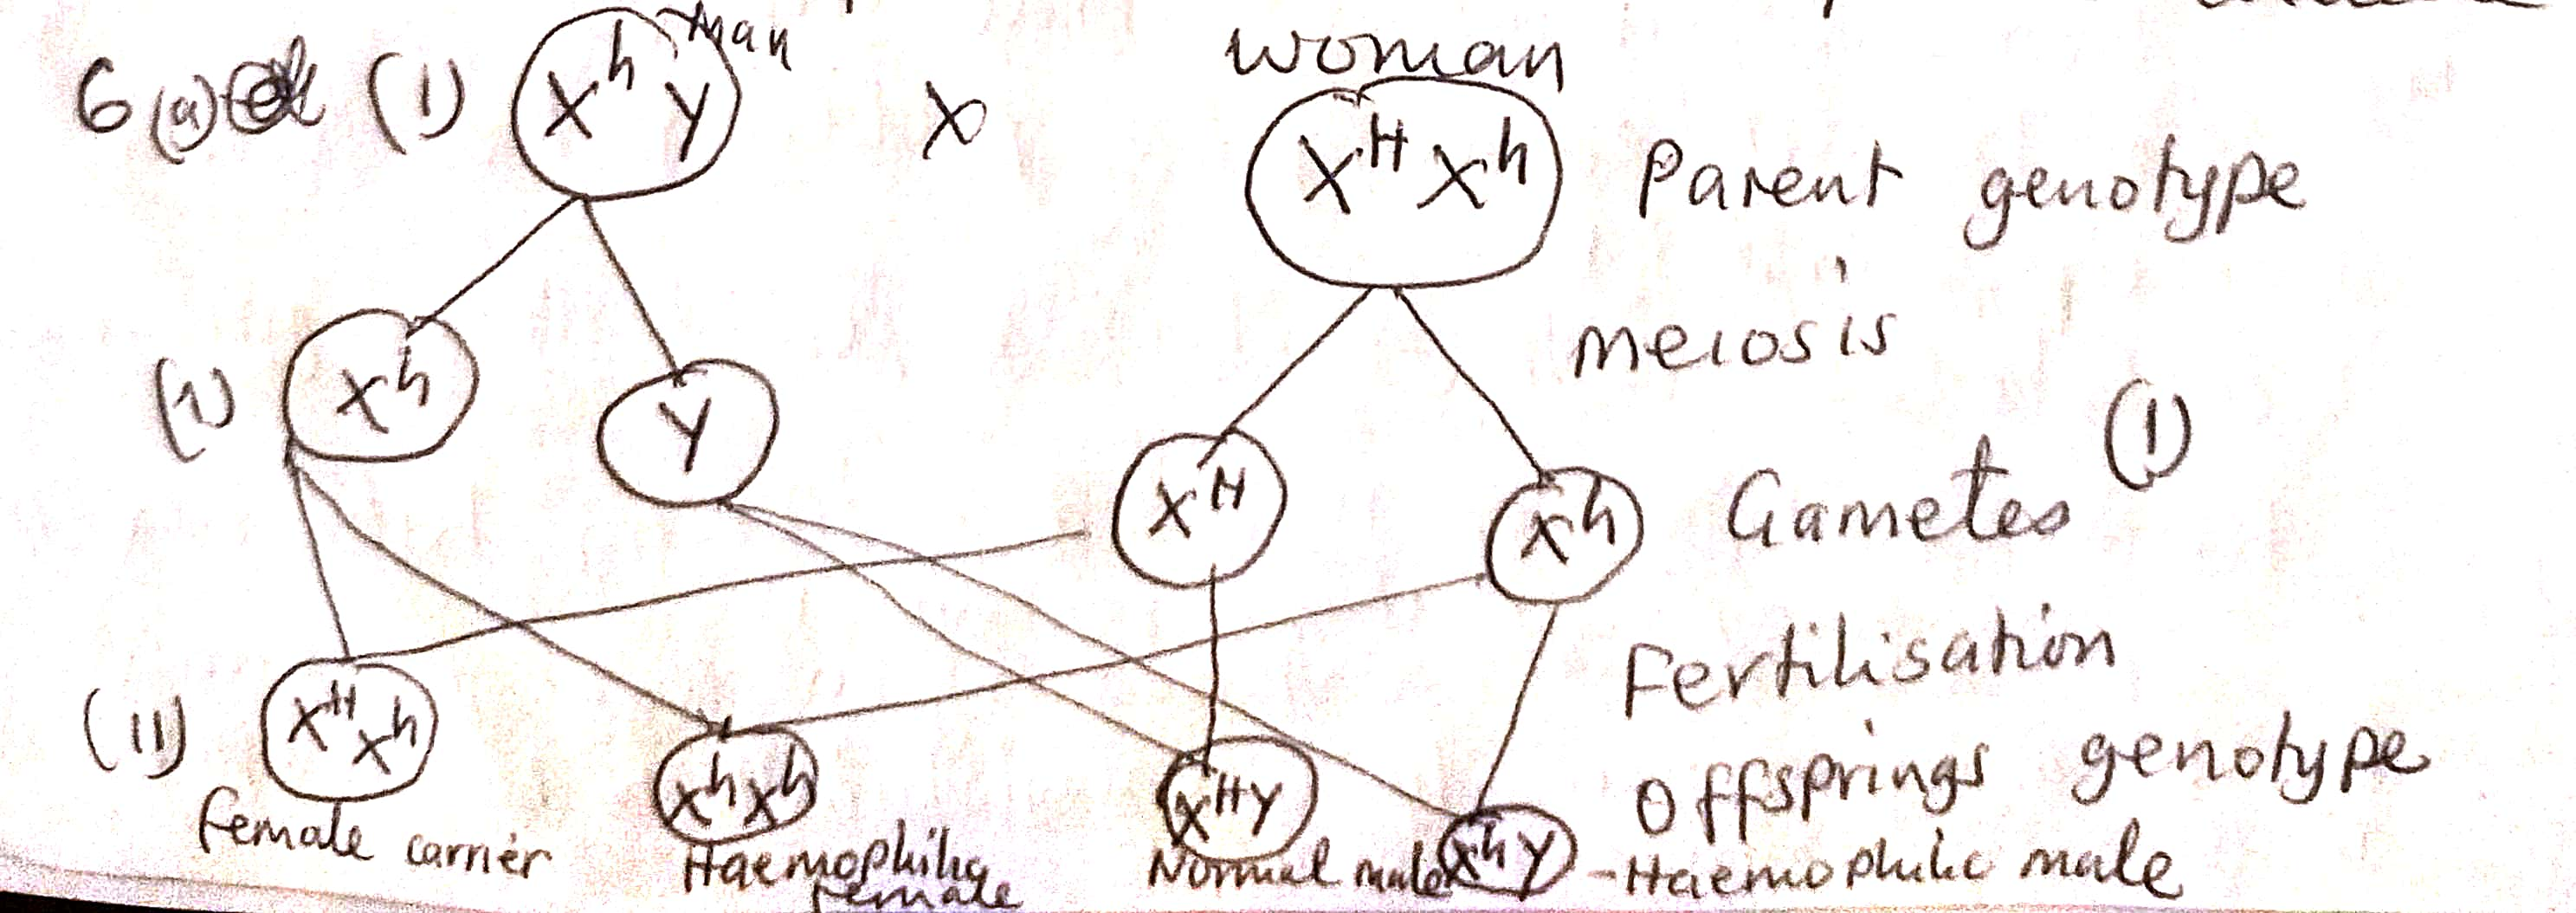 6 (a) (1) XʰY man X woman
XᴴXʰ Parent genotype
meiosis
(1) Xʰ Y Xᴴ Xʰ Gametes (1)
Fertilisation
(11) XᴴXʰ XʰXʰ XᴴY XʰY Offsprings genotype
Female carrier Haemophilic female Normal male - Haemophilic male